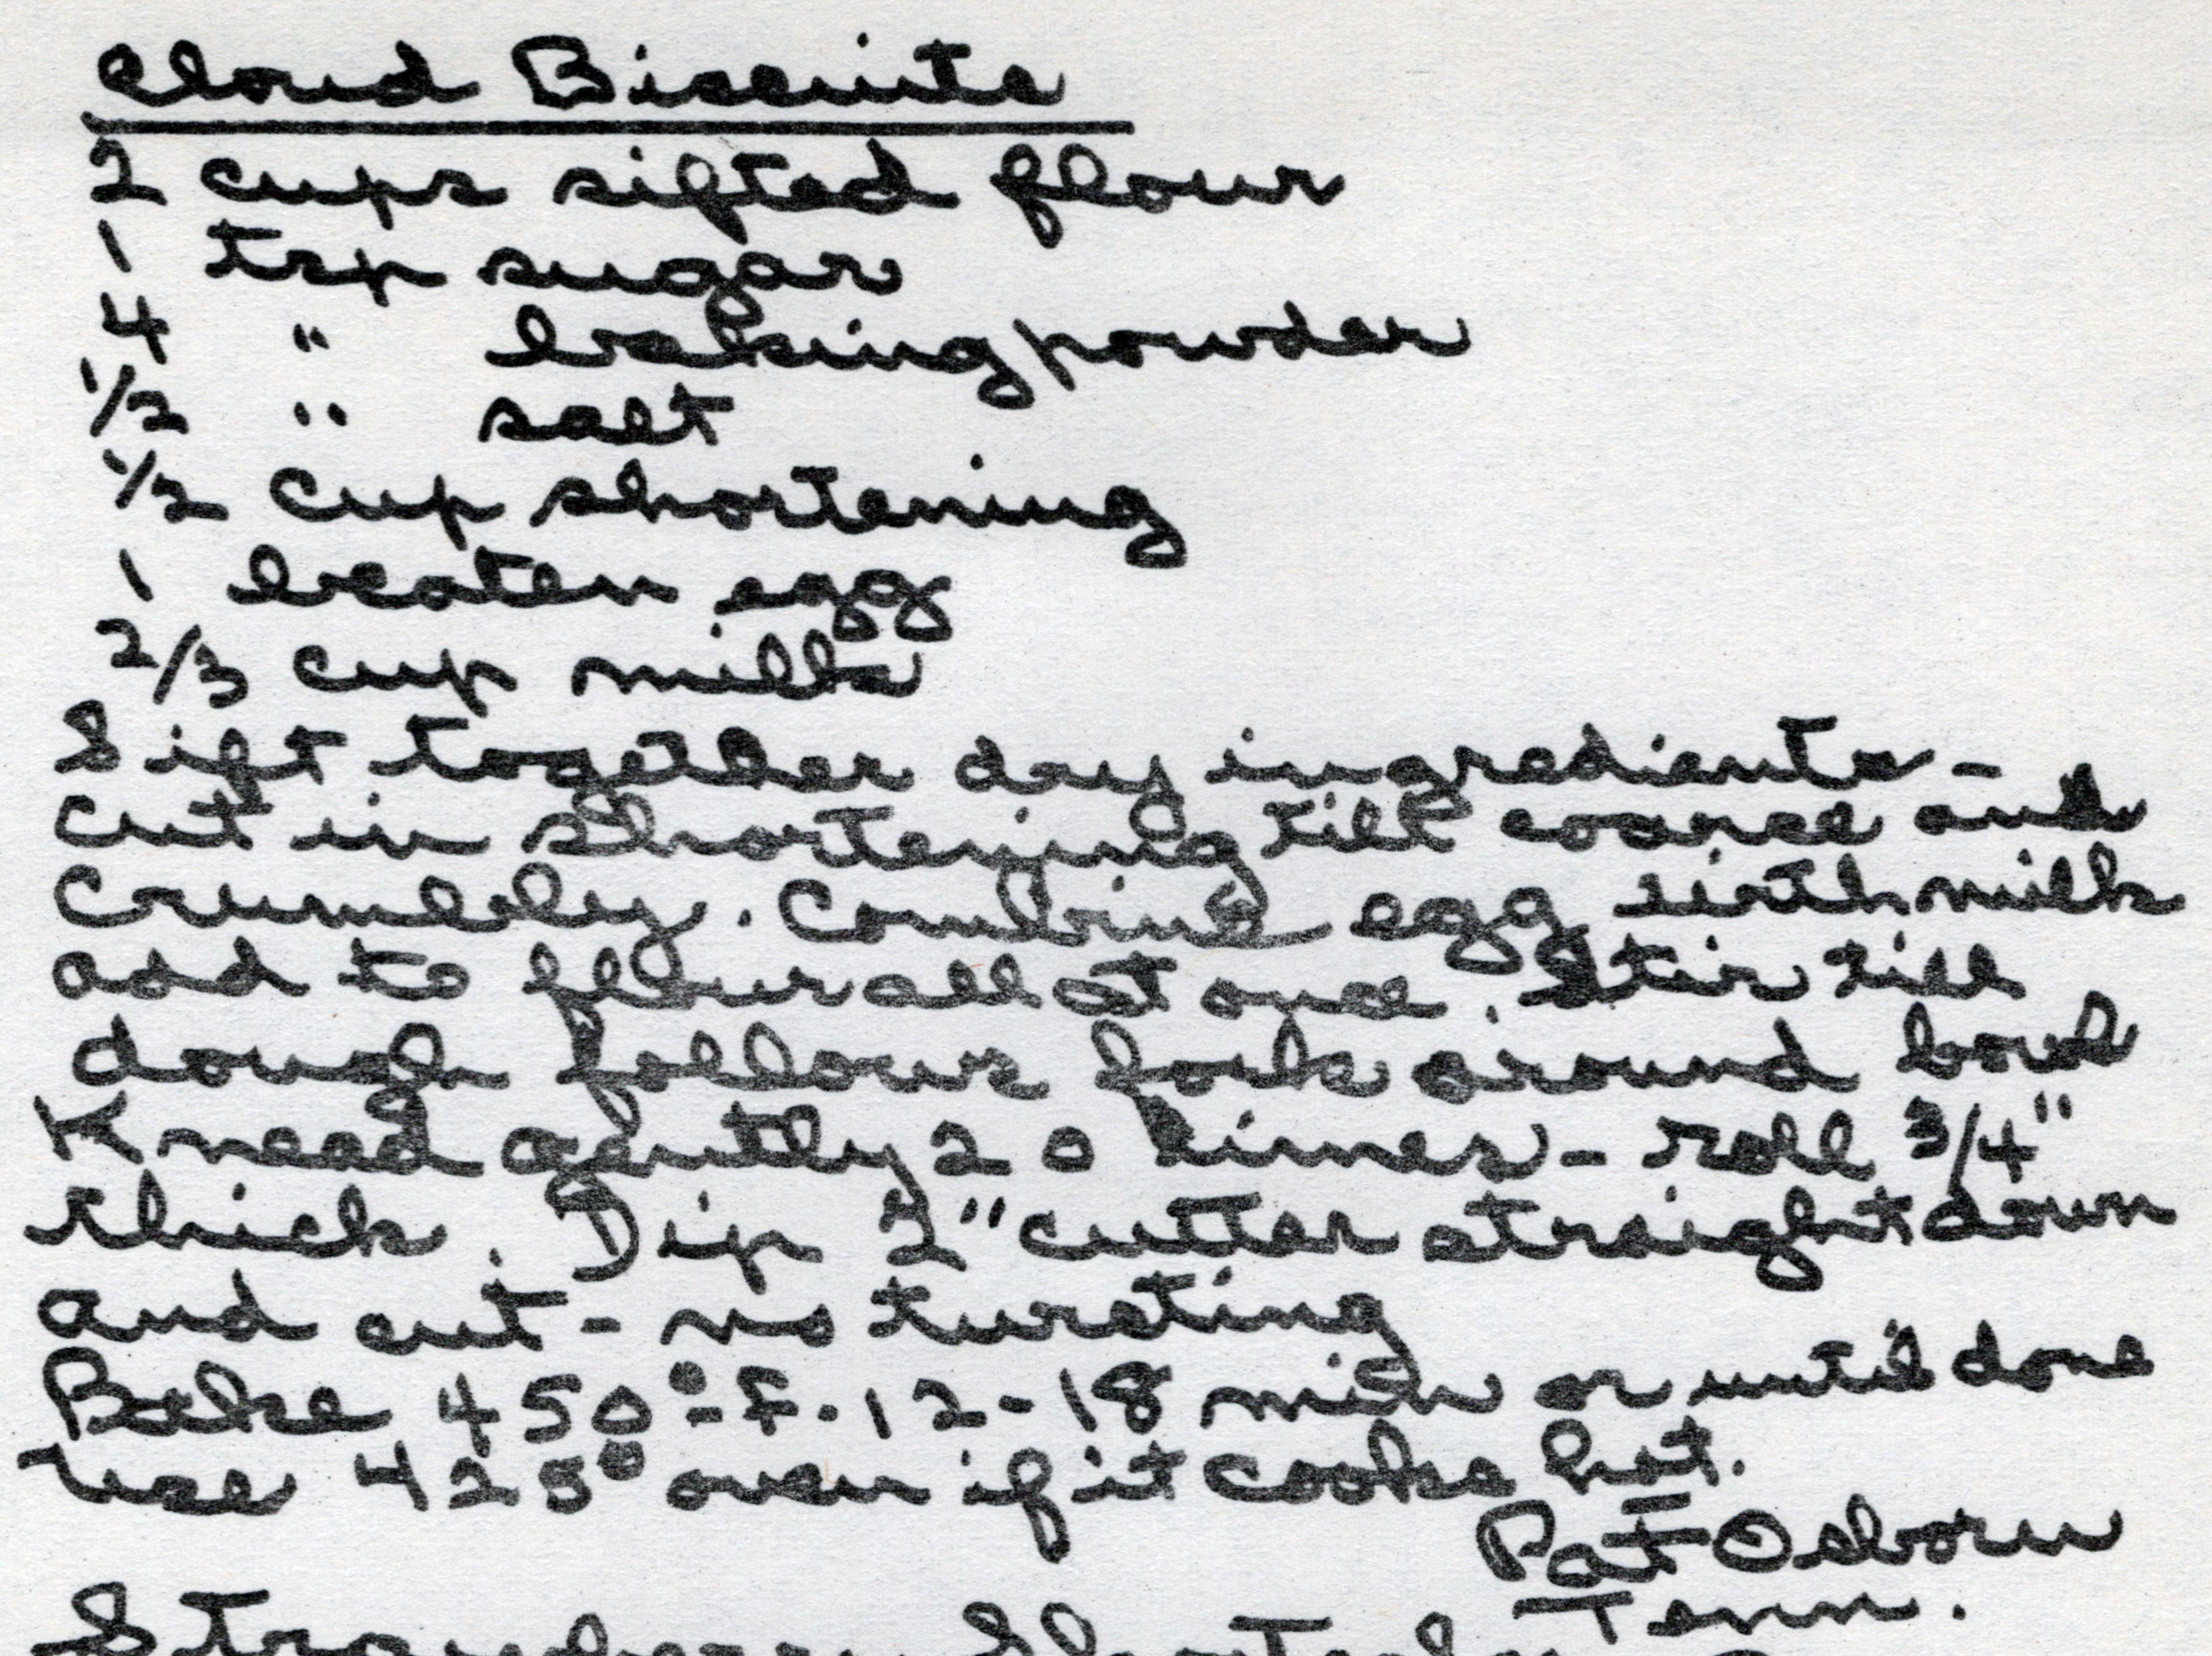 Cloud Biscuits
2 cups sifted flour
1 tsp sugar
4 " baking powder
1/2 " salt
1/2 cup shortening
1 beaten egg
2/3 cup milk
Sift together dry ingredients -
cut in shortening till coarse and
crumbly. Combine egg with milk
add to flour all at once. Stir till
dough follows fork around bowl
Knead gently 20 times - roll 3/4"
thick. Dip 2" cutter straight down
and cut - no turating
Bake 450°-F. 12-18 min or until done
Use 425° oven if it cooks hot.
Pat Osborn
Tenn.
Strawberry